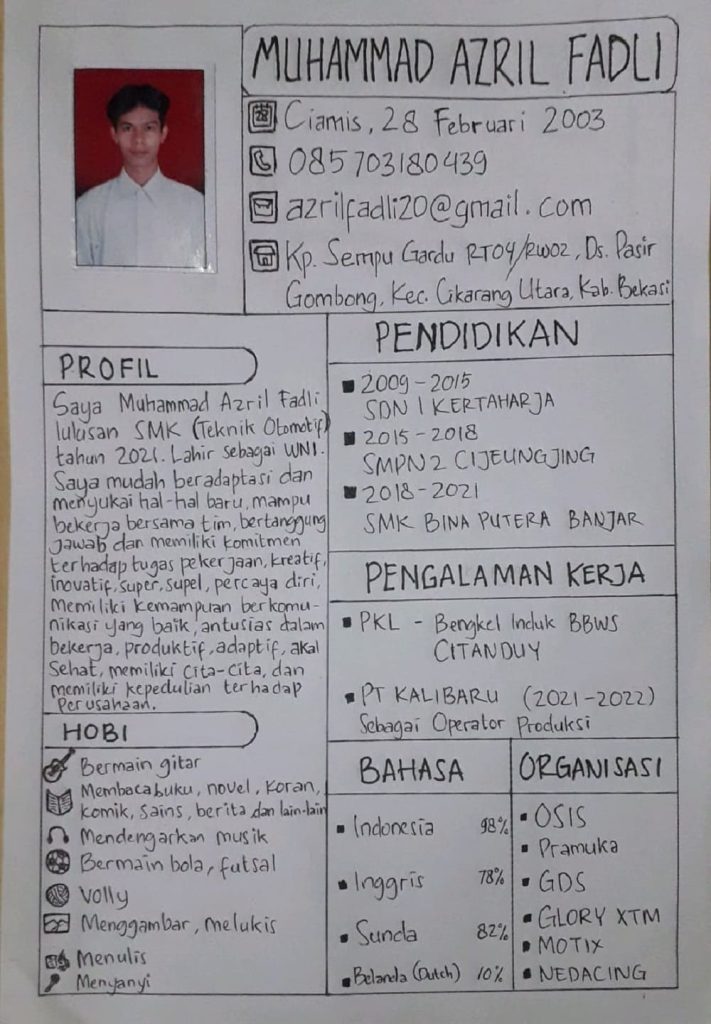 MUHAMMAD AZRIL FADLI
28
Ciamis, 28 Februari 2003
085703180439
azrilfadli20@gmail.com
Kp. Sempu Gardu RT04/RW02, Ds. Pasir
Gombong, Kec. Cikarang Utara, Kab. Bekasi
PROFIL
Saya Muhammad Azril Fadli
lulusan SMK (Teknik Otomotif)
tahun 2021. Lahir sebagai WNI.
Saya mudah beradaptasi dan
menyukai hal-hal baru, mampu
bekerja bersama tim, bertanggung
jawab dan memiliki komitmen
terhadap tugas pekerjaan, kreatif,
inovatif, super, supel, percaya diri,
Memiliki kemampuan berkomu-
nikasi yang baik, antusias dalam
bekerja, produktif, adaptif, akal
sehat, memiliki cita-cita, dan
memiliki kepedulian terhadap
Perusahaan.
HOBI
Bermain gitar
Membaca buku, novel, koran,
komik, sains, berita dan lain-lain
Mendengarkan musik
Bermain bola, futsal
Volly
Menggambar, melukis
Menulis
Menyanyi
PENDIDIKAN
2009 - 2015
SDN 1 KERTAHARJA
2015 - 2018
SMPN 2 CIJEUNGJING
2018 - 2021
SMK BINA PUTERA BANJAR
PENGALAMAN KERJA
PKL - Bengkel Induk BBWS
CITANDUY
PT KALIBARU (2021-2022)
Sebagai Operator Produksi
BAHASA
Indonesia 98%
Inggris 78%
Sunda 82%
Belanda (Dutch) 10%
ORGANISASI
OSIS
Pramuka
GDS
GLORY XTM
MOTIX
NEDACING